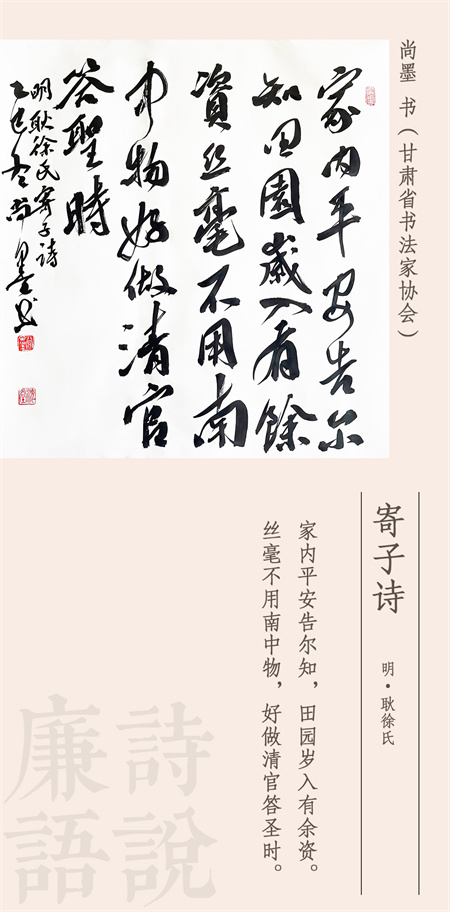 尚墨 书（甘肃省书法家协会）
家内平安告尔
知田园岁入有馀
资丝毫不用南
中物好做清官
答聖時
明耿徐氏寄子诗
乙巳冬尚墨书
寄子诗
明·耿徐氏
家内平安告尔知，田园岁入有余资。
丝毫不用南中物，好做清官答圣时。
詩說
廉語